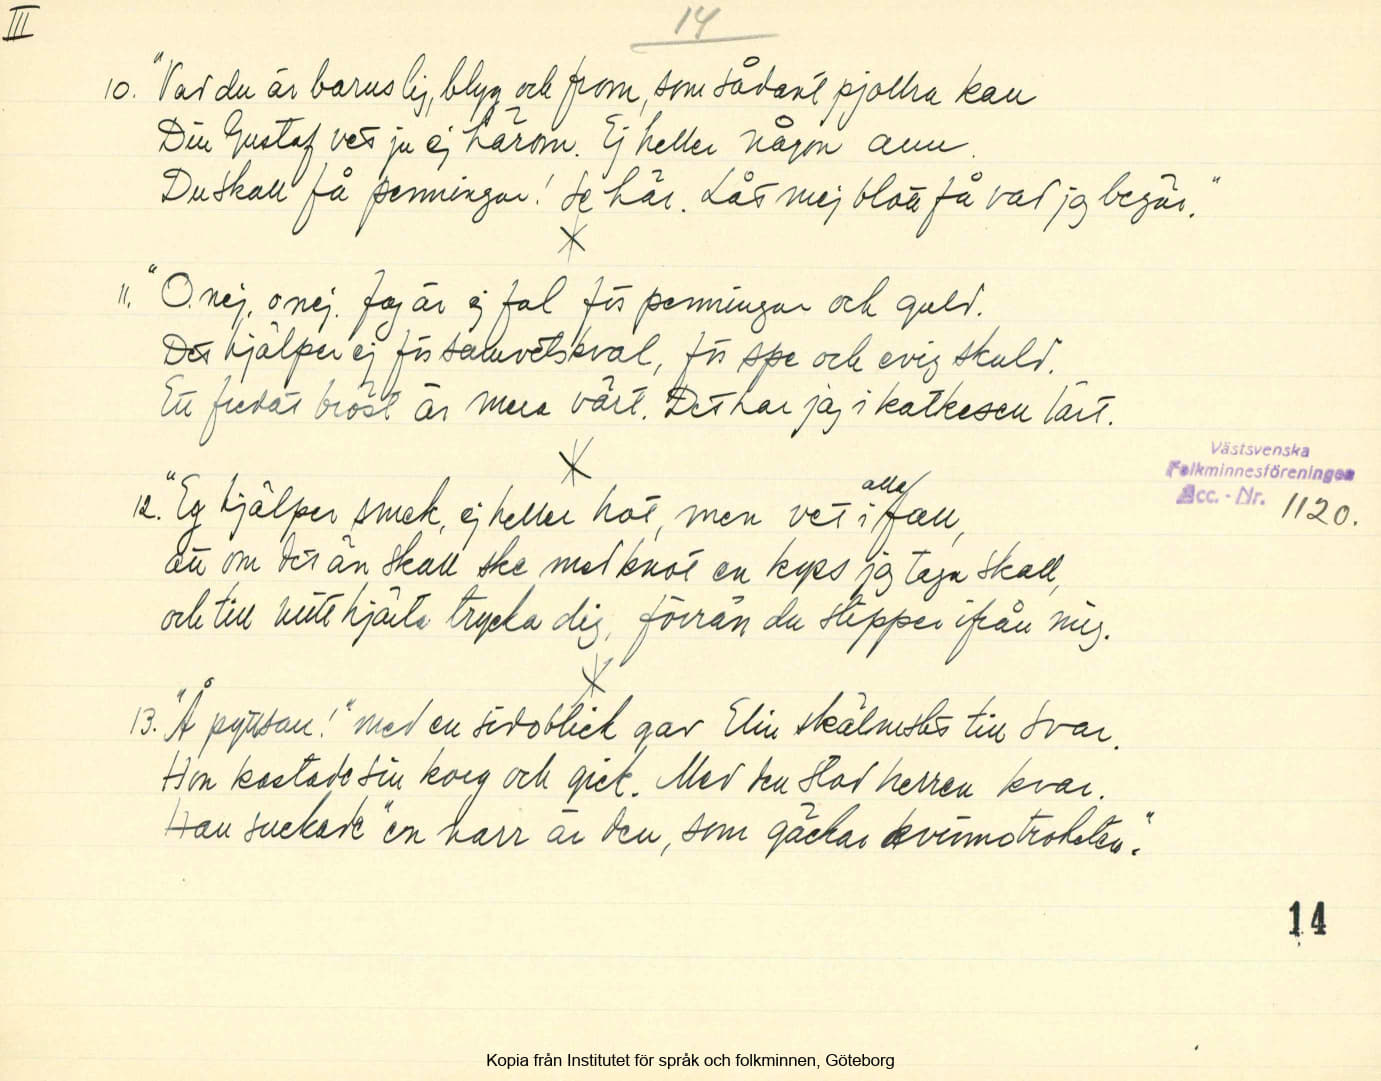 III
14
10. "Vad du är barnslig, blyg och from, som sådant pjollra kan
Din Gustaf vet ju ej härom. Ej heller någon ann.
Du skall få penningar! Se här. Låt mej blott få vad jag begär."
11. "O nej, o nej. Jag är ej fal för penningar och guld.
Det hjälper ej för samvetskval, för spe och evig skuld.
Ett fredat bröst är mera värt. Det har jag i katkesen lärt.
12. "Ej hjälper smek, ej heller hot, men vet i alla fall,
att om det än skall ske med knot en kyss jag taga skall,
och till mitt hjärta trycka dig, förrän du slipper ifrån mig.
13. "Å pyttsan!" med en sidoblick gav Elin skälmskt till svar.
Hon kastade sin korg och gick. Med den stod herren kvar.
Han suckade "en narr är den, som gäckar kvinnotroheten."
Västsvenska
Folkminnesföreningen
Acc. - Nr. 1120.
14
Kopia från Institutet för språk och folkminnen, Göteborg